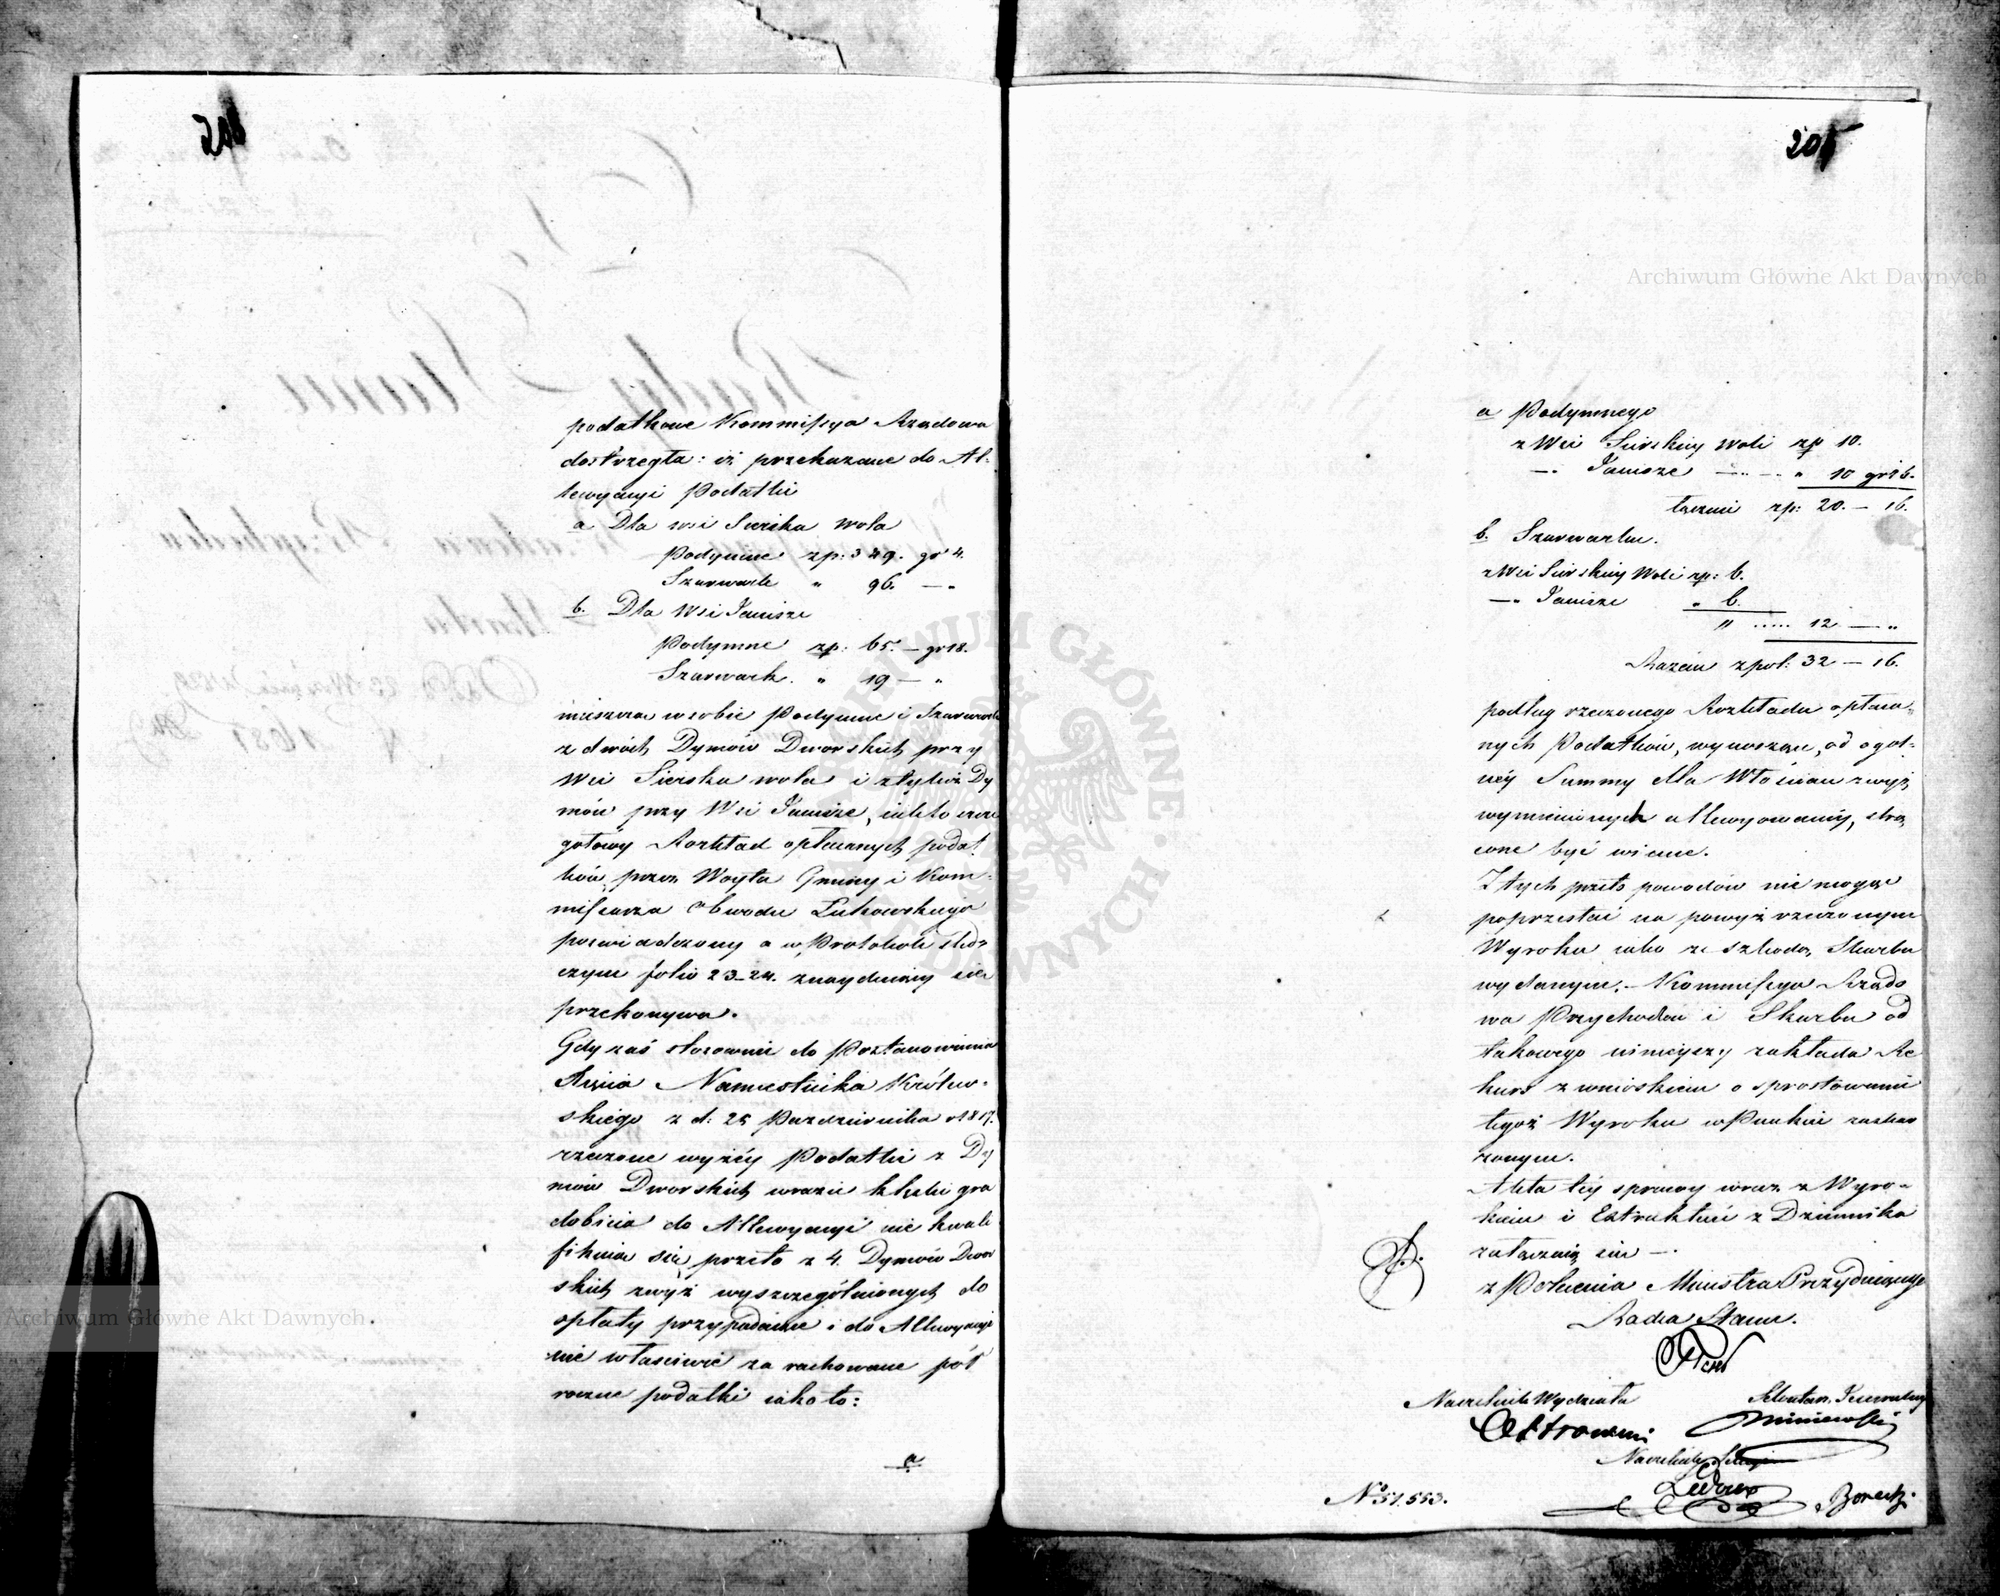 205
podatkowe Kommissya Rządowa
dostrzegła: iż przekazane do Al-
lewyacyi Podatki
a Dla wsi Sierska wola
Podymne zp: 329. gr 4.
Szarwark " 96. — "
b. Dla Wsi Janisze
Podymne zp: 65. — gr 18.
Szarwark. " 19 — "
mieszczą w sobie Podymne i Szarwark
z dwóch Dymów Dworskich przy
Wsi Sierska wola i z tyluż Dy
mów przy Wsi Janisze, iak to szcze
gółowy Rozkład opłacanych podat
ków, przez Woyta Gminy i Kom-
missarza Obwodu Łukowskiego
poswiadczony a w Protokole sled-
czym folio 23-24. znayduiący się
przekonywa.
Gdy zaś stosownie do Postanowienia
Xięcia Namiestnika Królew-
skiego z d: 25 Pazdziernika r 1817.
rzeczone wyżéy Podatki z Dy
mów Dworskich w razie klęski gra
dobicia do Allewyacyi nie kwali
fikuią się, przeto z 4. Dymów Dwor
skich zwyż wyszczególnionych do
opłaty przypadaiące i do Allewyacyi
nie właściwie za rachowane pół
roczne podatki iako to:
a
205
a Podymnego
z Wsi Sierskiey Woli zp 10.
— " Janisze — " — " 10 gr 16.
łącznie zp: 20. — 16.
b. Szarwarku.
z Wsi Sierskiey Woli zp: 6.
— " Janisze " 6.
" ..... 12 — "
Razem zpol: 32 — 16.
podług rzeczonego Rozkładu opłaca-
nych Podatków, wynoszące, od ogól-
néy Summy dla Włościan zwyż
wymienionych allewyowanéy, strą
cone być winne.
Z tych przeto powodów nie mogąc
poprzestać na powyż rzeczonym
Wyroku iako ze szkodą Skarbu
wydanym. — Kommissya Rządo
wa Przychodów i Skarbu od
takowego ninieyszy zakłada Re
kurs z wnioskiem o sprostowanie
tegoż Wyroku w Punkcie zaskar
żonym.
Akta téy sprawy wraz z Wyro-
kiem i Extraktem z Dziennika
załączaią się —.
z Polecenia Ministra Prezyduiącego
Radca Stanu.
Naczelnik Wydziału Sekretarz Jeneralny
Ostrowski
Naczelnik Sekcyi
No 51,553.